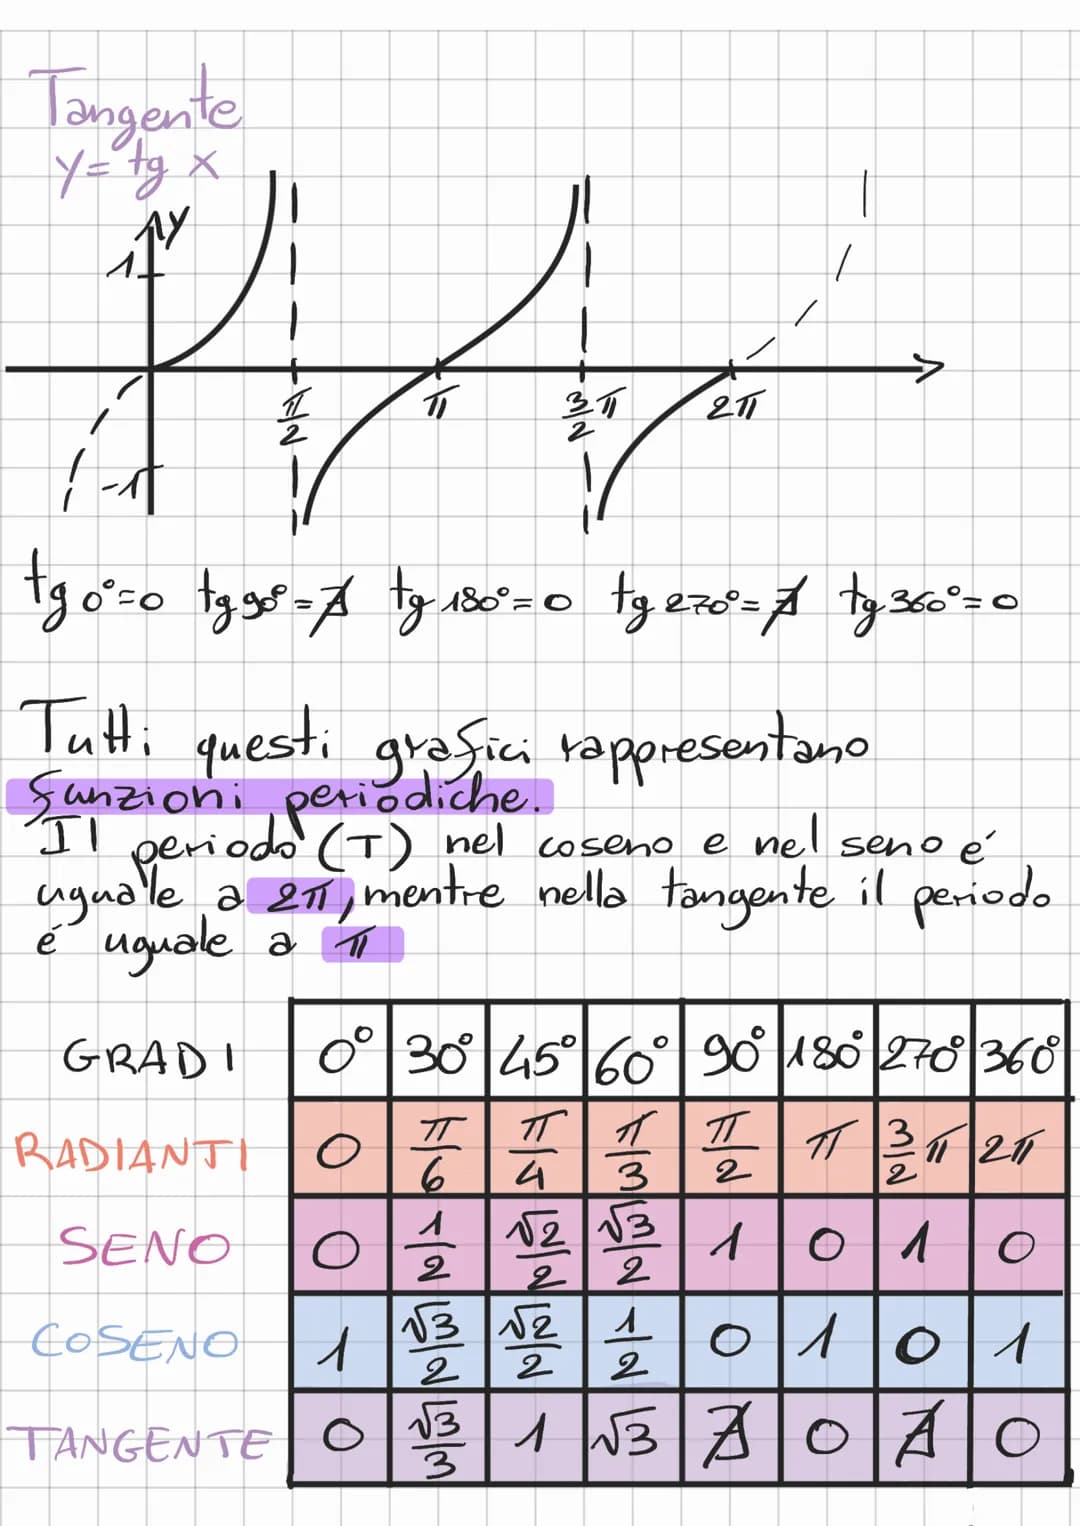 Tangente
y = tg x
y
1
-1
π/2 π 3/2 π 2π
tg 0°=0 tg 90°=∄ tg 180°=0 tg 270°=∄ tg 360°=0
Tutti questi grafici rappresentano
funzioni periodiche.
Il periodo (T) nel coseno e nel seno é
uguale a 2π, mentre nella tangente il periodo
é uguale a π
GRADI 0° 30° 45° 60° 90° 180° 270° 360°
RADIANTI 0 π/6 π/4 π/3 π/2 π 3/2 π 2π
SENO 0 1/2 √2/2 √3/2 1 0 1 0
COSENO 1 √3/2 √2/2 1/2 0 1 0 1
TANGENTE 0 √3/3 1 √3 ∄ 0 ∄ 0